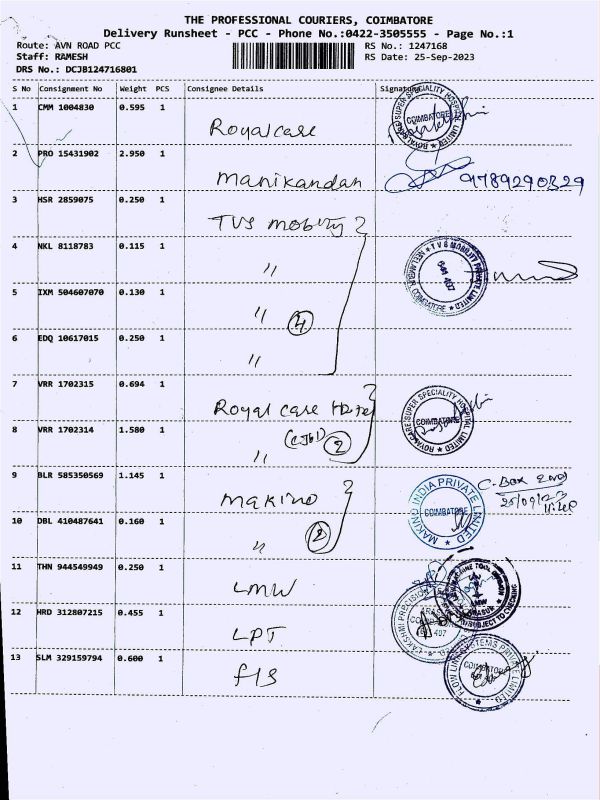 THE PROFESSIONAL COURIERS, COIMBATORE
Delivery Runsheet - PCC - Phone No.:0422-3505555 - Page No.:1
Route: AVN ROAD PCC RS No.: 1247168
Staff: RAMESH RS Date: 25-Sep-2023
DRS No.: DCJB124716801
S No Consignment No Weight PCS Consignee Details Signature
1 CMM 1004830 0.595 1 Royalcare
2 PRO 15431902 2.950 1 Manikandan 9789290329
3 HSR 2859075 0.250 1 TVS mobility
4 NKL 8118783 0.115 1 "
5 IXM 504607070 0.130 1 " 4
6 EDQ 10617015 0.250 1 "
7 VRR 1702315 0.694 1 Royal care
8 VRR 1702314 1.580 1 " 2
9 BLR 585350569 1.145 1 Makino
10 DBL 410487641 0.160 1 " 2
11 THN 944549949 0.250 1 LMW
12 HRD 312807215 0.455 1 LPT
13 SLM 329159794 0.600 1 FLS
ROYALCARE SUPER SPECIALITY HOSPITAL LIMITED
COIMBATORE
TVS MOBILITY PRIVATE LIMITED
COIMBATORE
641 407
ROYALCARE SUPER SPECIALITY HOSPITAL LIMITED
COIMBATORE
MAKINO INDIA PRIVATE LIMITED
COIMBATORE
C. Box
25/09/23
LMW
SUBJECT TO CHECKING
LAKSHMI PRECISION
407
FLOW LINK SYSTEMS PRIVATE LIMITED
COIMBATORE